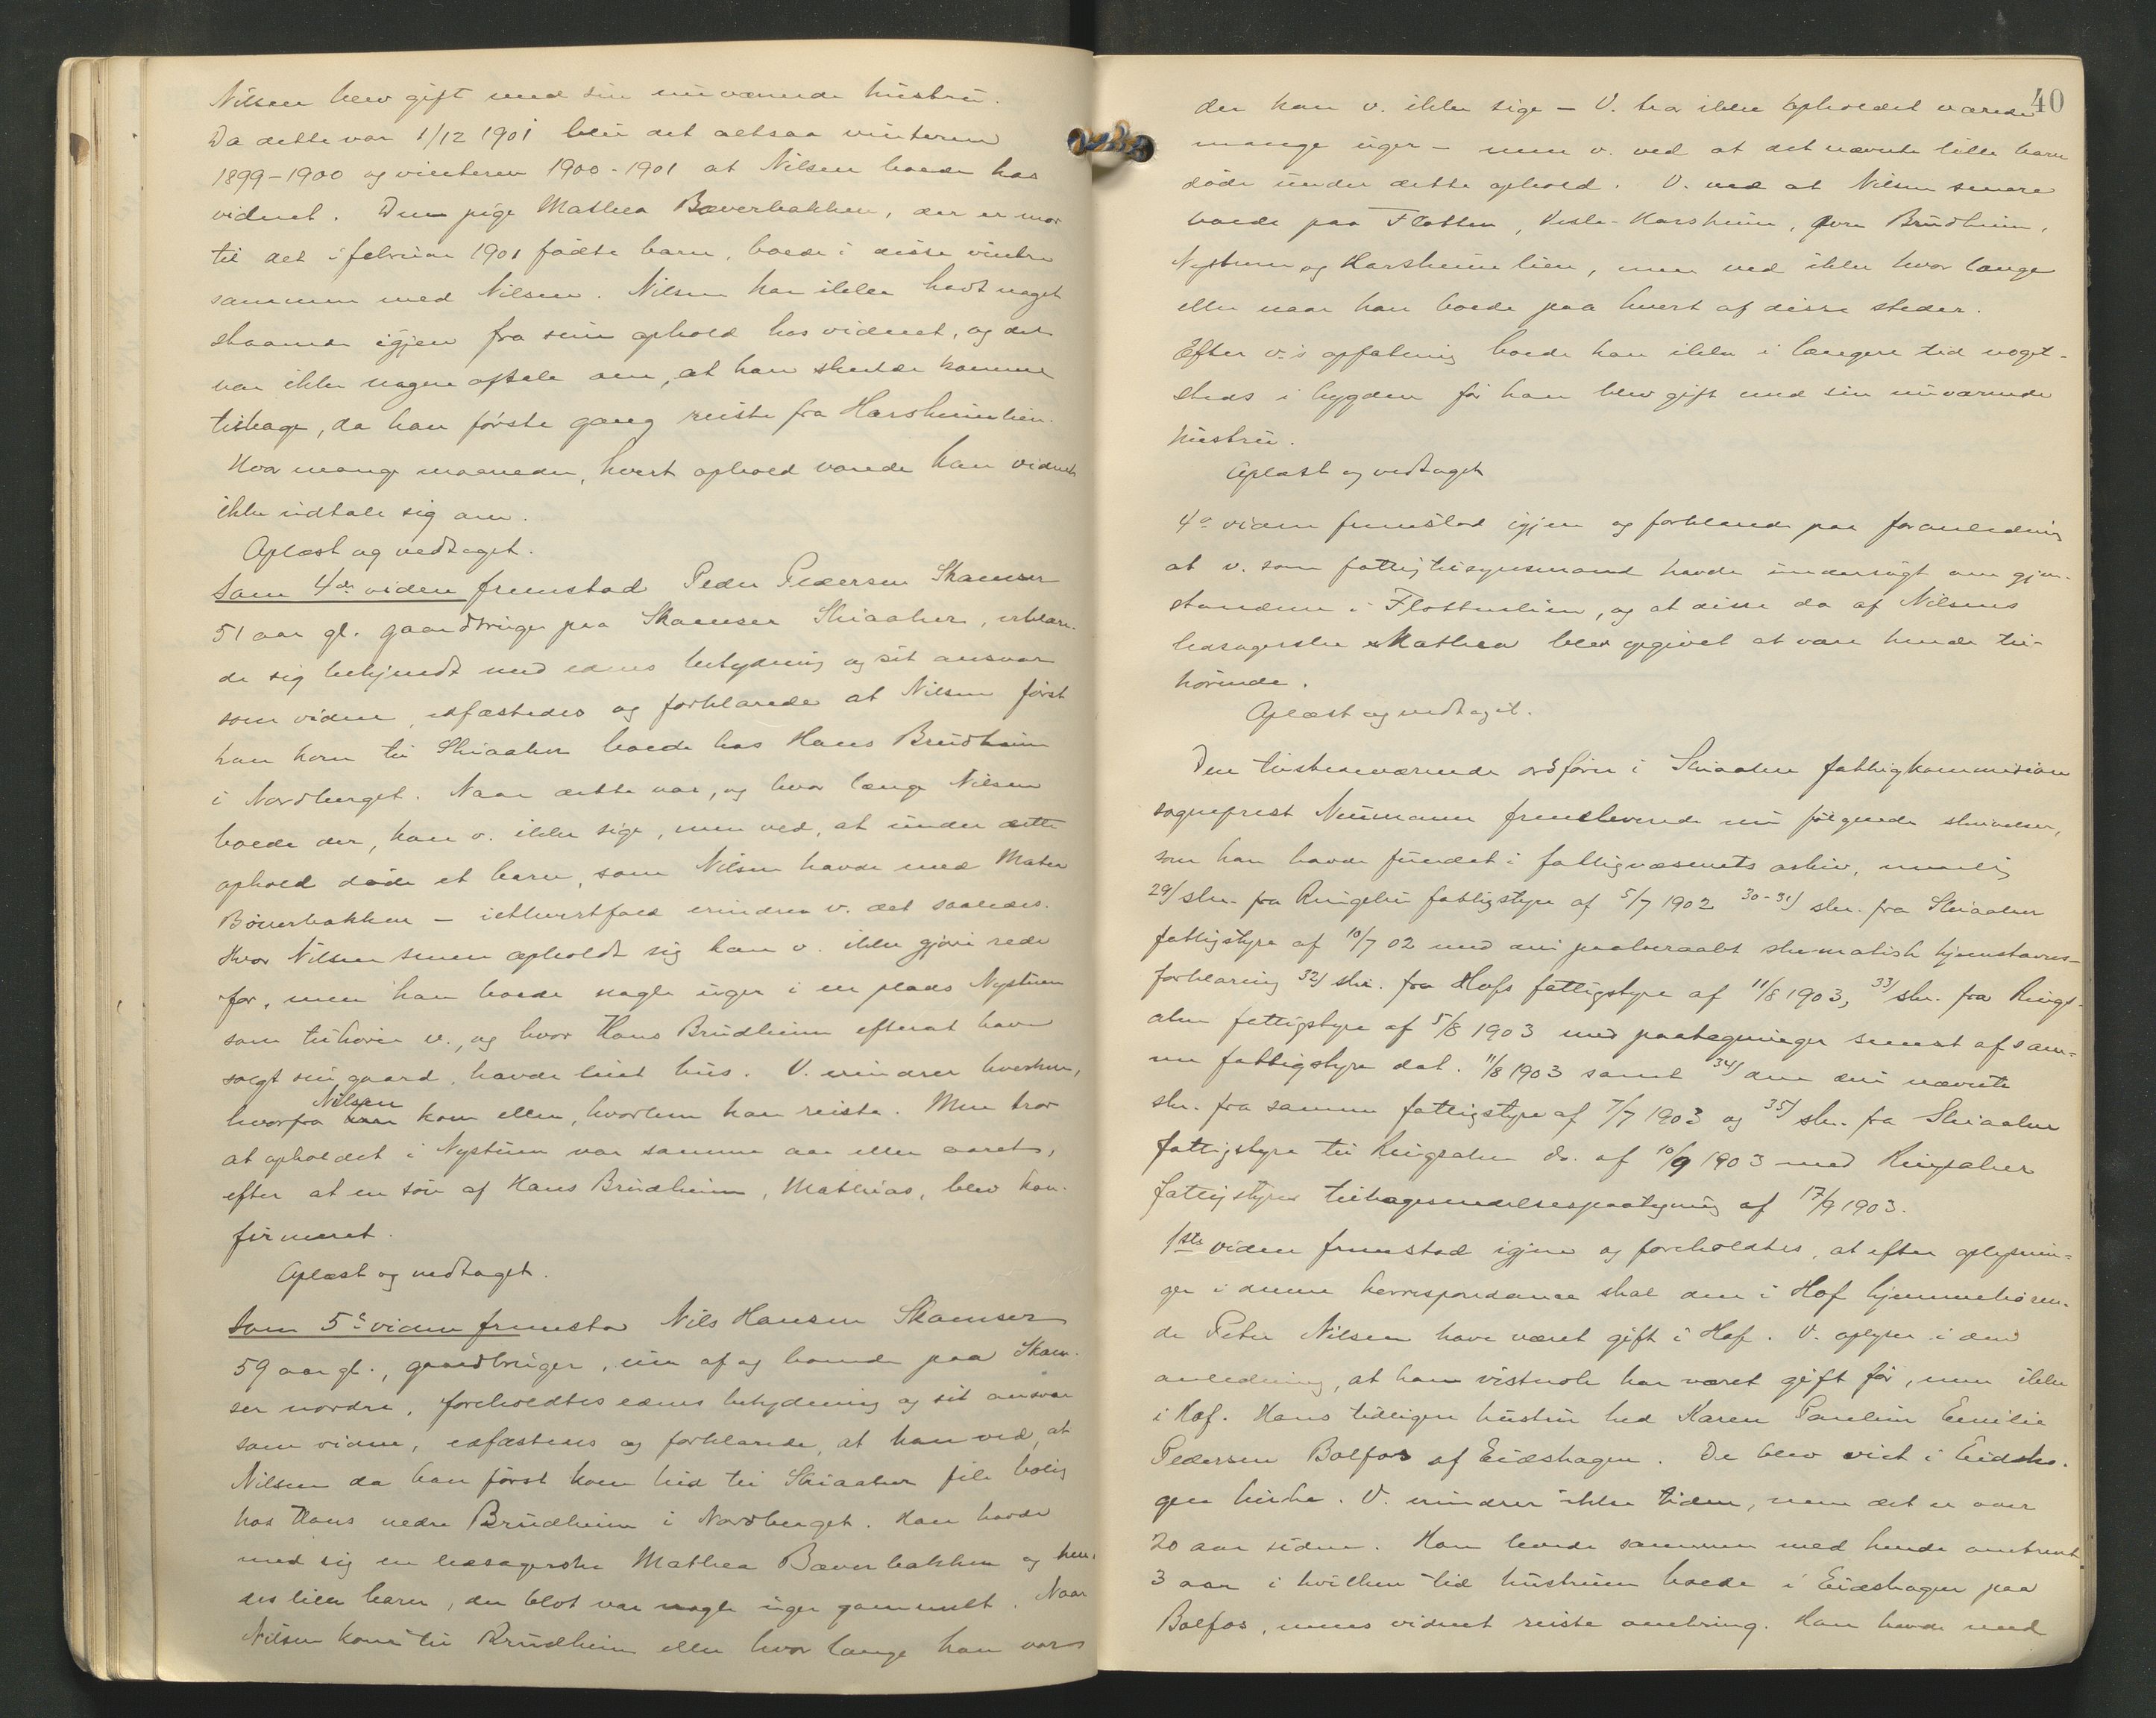 Nilsen blev gift med sin nuværende hustru.
Da dette var 1/12 1901 blir det altsaa vinteren
1899-1900 og vinteren 1900-1901 at Nilsen boede hos
vidnet. Den pige Mathea Bæverbakken, der er mor
til det i februar 1901 fødte barn, boede i disse vintre
sammen med Nilsen. Nilsen har ikke havt noget
staaende igjen fra sine ophold hos vidnet, og det
var ikke nogen aftale om, at han skulde komme
tilbage, da han første gang reiste fra Harsheimlien.
Hvor mange maaneder, hvert ophold varede kan vidnet
ikke udtale sig om.
Oplæst og vedtaget.
Som 4de vidne fremstod Peder Pedersen Skamser
51 aar gl. gaardbruger paa Skamser Skiaaker, erklære-
de sig bekjendt med edens betydning og sit ansvar
som vidne, edfæstedes og forklarede at Nilsen først
han kom til Skiaaker boede hos Hans Brudheim
i Nordberget. Naar dette var, og hvor længe Nilsen
boede der, kan v. ikke sige, men ved, at under dette
ophold døde et barn, som Nilsen havde med Mathea
Bæverbakken - ialhvertfald erindrer v. det saaledes.
Hvor Nilsen senere opholdt sig kan v. ikke gjøre rede
for, men han boede nogle uger i en plads Nystuen
som tilhører v., og hvor Hans Brudheim efterat have
solgt sin gaard, havde leiet hus. V. erindrer hverken,
hvorfra Nilsen kom eller, hvorhen han reiste. Men tror
at opholdet i Nystuen var samme aar eller aaret,
efter at en søn af Hans Brudheim, Mathias, blev kon-
firmeret.
Oplæst og vedtaget.
Som 5te vidne fremstod Nils Hansen Skamser
59 aar gl., gaardbruger, eier af og boende paa Skam-
ser nordre, foreholdtes edens betydning og sit ansvar
som vidne, edfæstedes og forklarede, at han ved, at
Nilsen da han først kom hid til Skiaaker fik bolig
hos Hans nedre Brudheim i Nordberget. Han havde
med sig en ledsagerske Mathea Bæverbakken og hen-
des lille barn, der blot var nogle uger gammelt. Naar
Nilsen kom til Brudheim eller hvor længe han var
40
der kan v. ikke sige - V. tror ikke opholdet varede
mange uger - men v. ved at det nævnte lille barn
døde under dette ophold. V. ved at Nilsen senere
boede paa Flotten, Vesle-Harsheim, øvre Brudheim,
Nystuen og Harsheimlien, men ved ikke hvor længe
eller naar han boede paa hvert af disse steder.
Efter v.'s opfatning boede han ikke i længere tid noget-
steds i bygden før han blev gift med sin nuværende
hustru.
Oplæst og vedtaget
4e vidne fremstod igjen og forklarede paa foranledning
at v. som fattigtilsynsmand havde undersøgt om gjen-
standene i Flottenlien, og at disse da af Nilsens
ledsagerske Mathea blev opgivet at være hende til-
hørende.
Oplæst og vedtaget.
Den tilstedeværende ordfører i Skiaaker fattigkommission
sogneprest Neumann fremleverede nu følgende skrivelser,
som han havde fundet i fattigvæsenets arkiv, nemlig
29/ skr. fra Ringebu fattigstyre af 5/7 1902 30-31/ skr. fra Skiaaker
fattigstyre af 10/7 02 med den paaberaabt skematisk hjemstavns-
forklaring 32/ skr. fra Hofs fattigstyre af 11/8 1903, 33/ skr. fra Rings-
aker fattigstyre af 5/8 1903 med paategninger senest af sam-
me fattigstyre dat. 11/8 1903 samt 34/ den deri nævnte
skr. fra samme fattigstyre af 7/7 1903 og 35/ skr. fra Skiaaker
fattigstyre til Ringsaker do. af 10/9 1903 med Ringsaker
fattigstyres tilbagesendelsespaategning af 17/9 1903.
1ste vidne fremstod igjen og foreholdtes, at efter oplysnin-
ger i denne korrespondance skal den i Hof hjemmehøren-
de Peter Nilsen have været gift i Hof. V. oplyser i den
anledning, at han vistnok har været gift før, men ikke
i Hof. Hans tidligere hustru hed Karen Pauline Emilie
Pedersen Bolfos af Eidskogen. De blev viet i Eidsko-
gen kirke. V. erindrer ikke tiden, men det er over
20 aar siden. Han levede sammen med hende omtrent
3 aar i hvilken tid hustruen boede i Eidskogen paa
Bolfos, mens vidnet reiste omkring. Han havde med